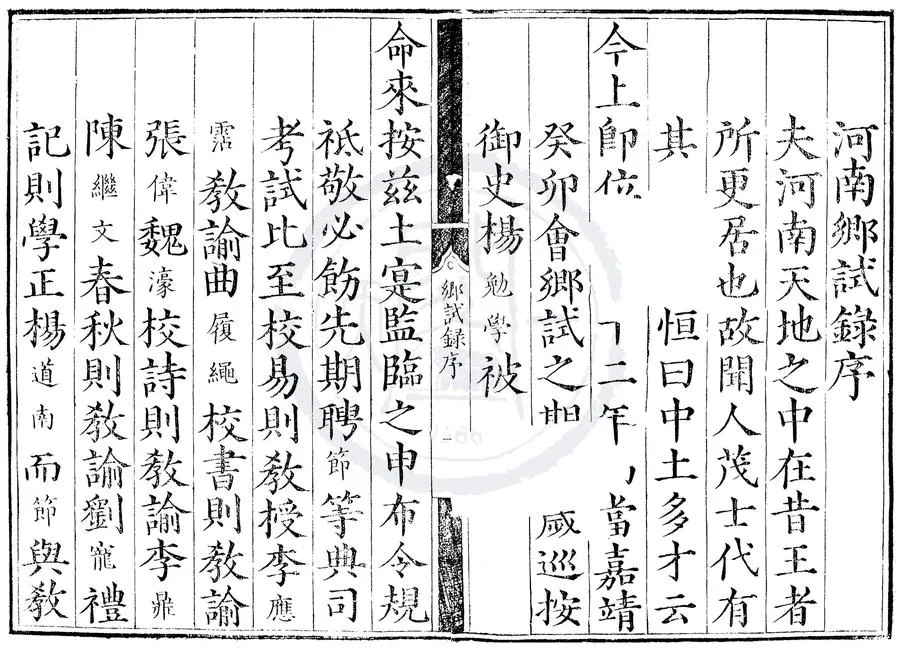 河南鄉試録序
夫河南天地之中在昔王者
所更居也故聞人茂士代有
其恒曰中土多才云
今上卽位二年當嘉靖
癸卯會鄉試之巡按
御史楊勉學被
鄉試録序
命來按茲土寔監臨之申布令規
祗敬必飭先期聘節等典司
考試比至校易則教授李應
霑教諭曲履繩校書則教諭
張偉魏濠校詩則教諭李鼎
陳繼文春秋則教諭劉寵禮
記則學正楊道南而節與教